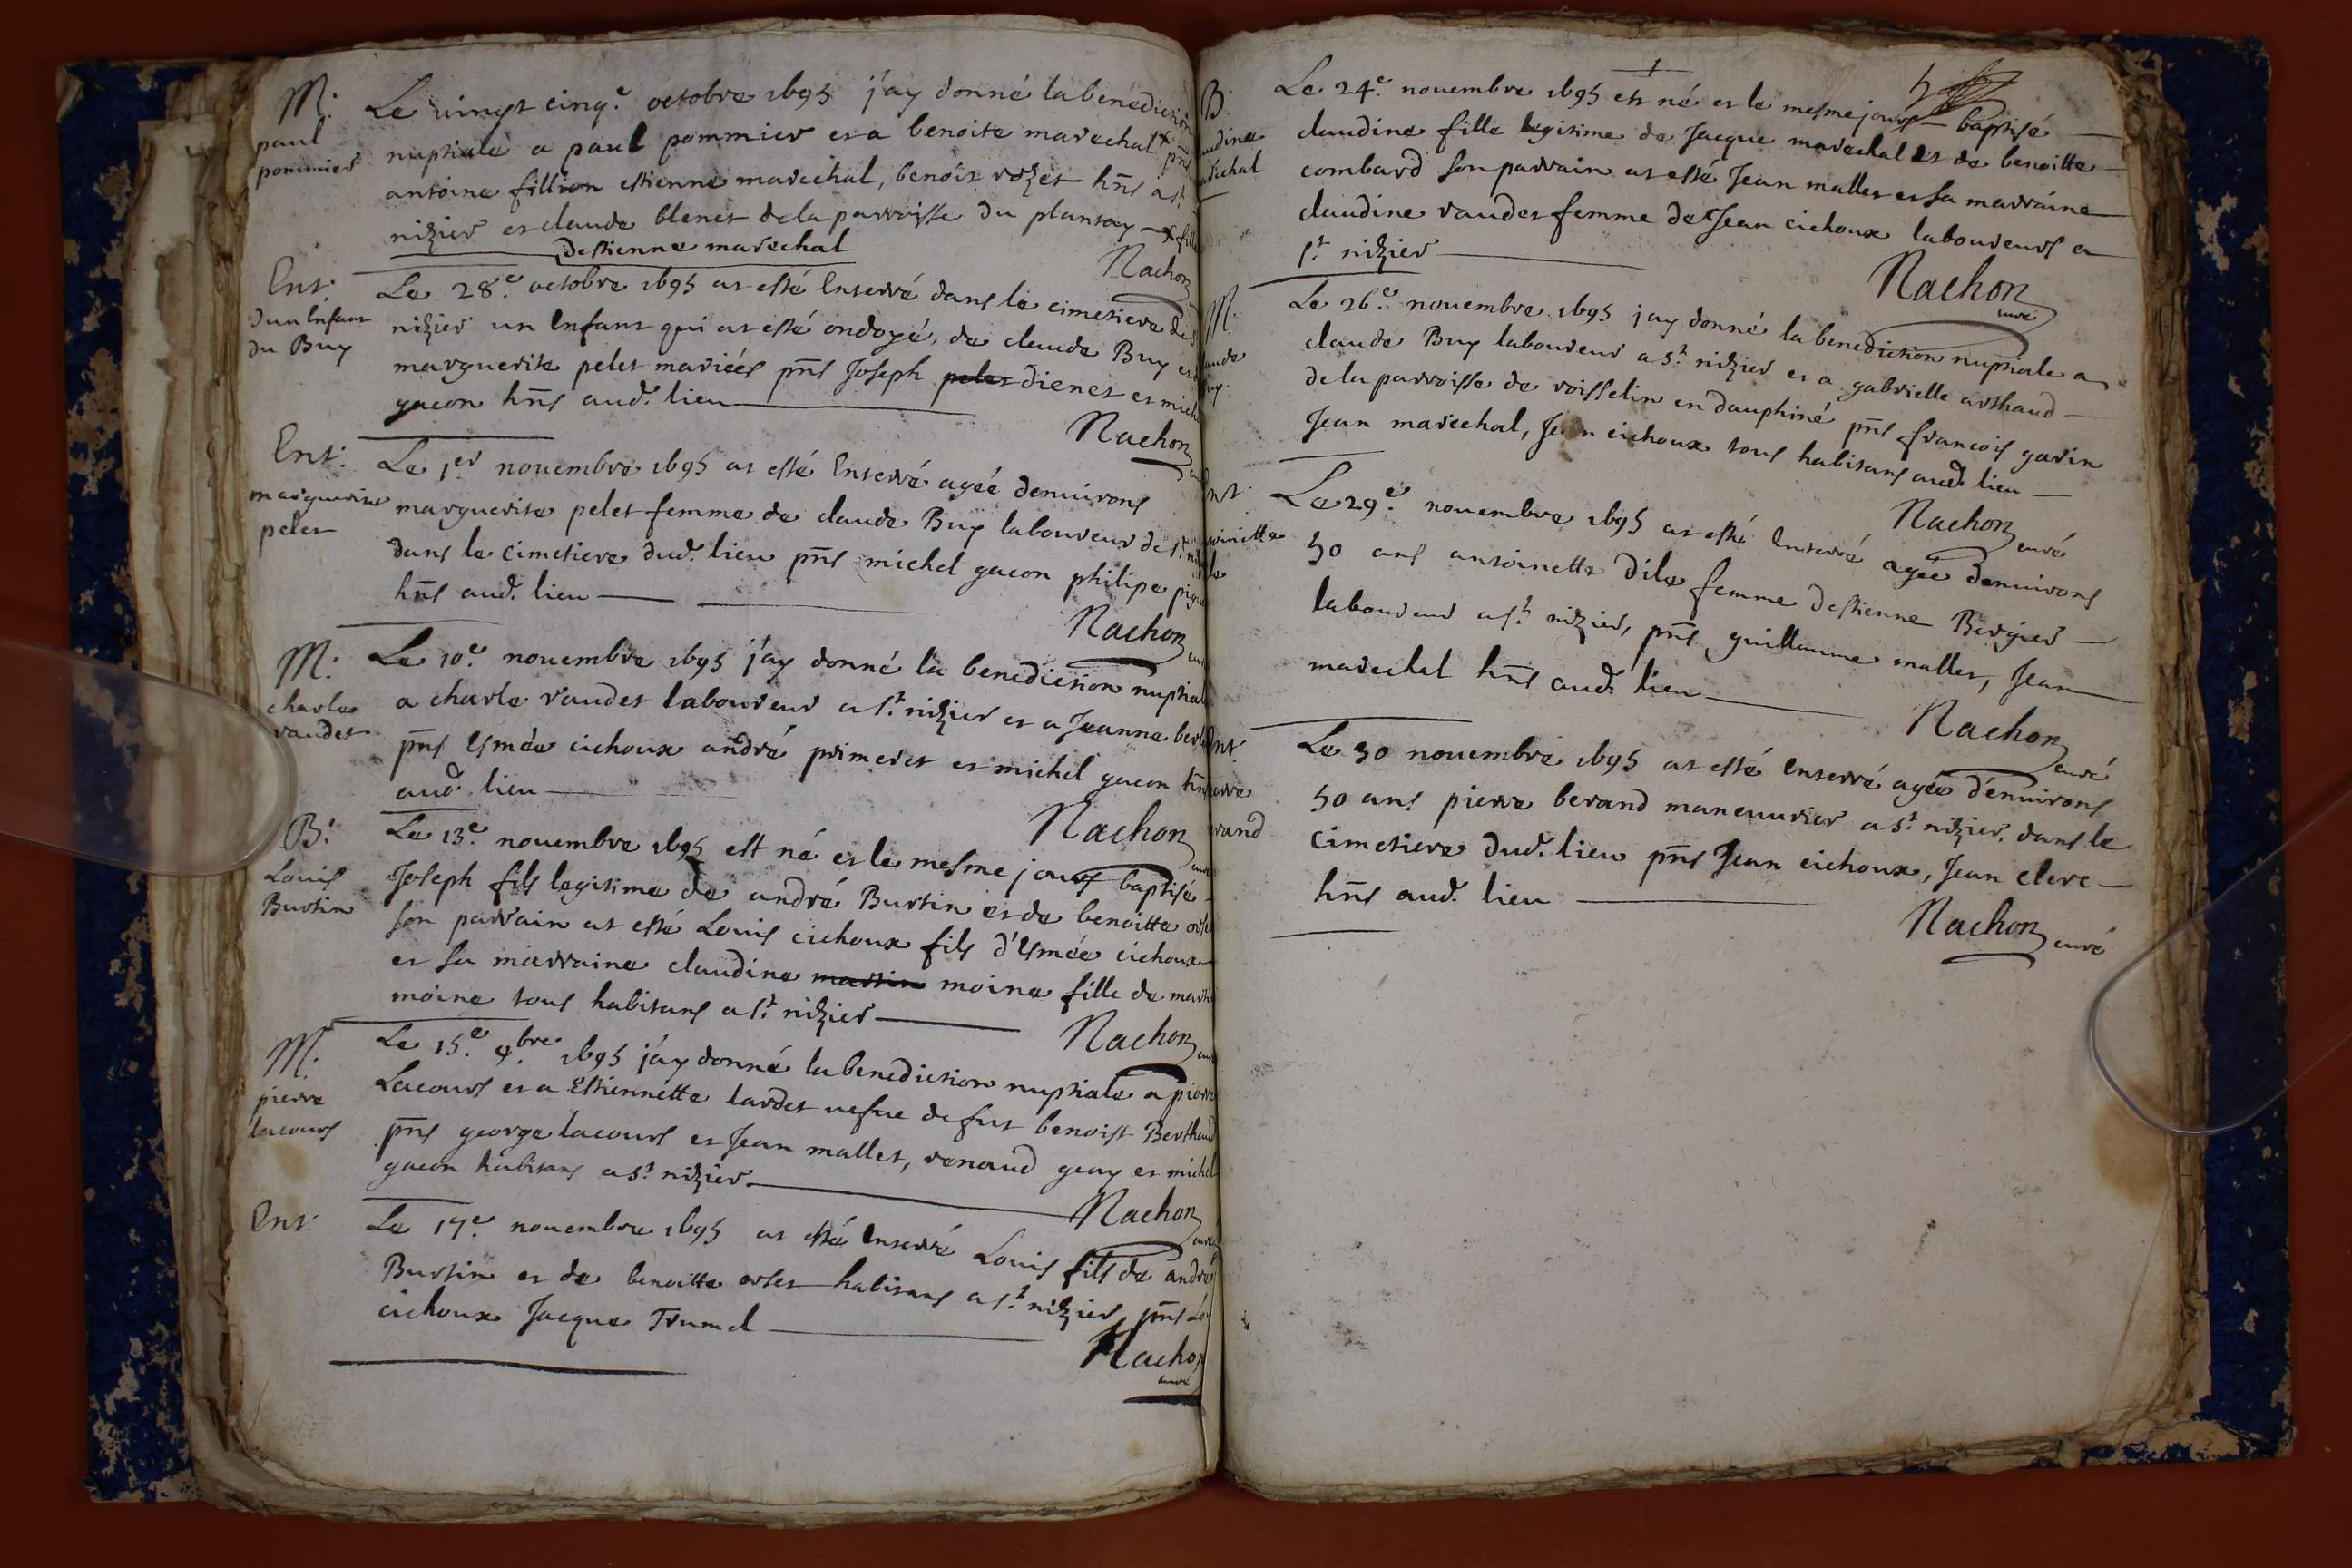 M.
paul
pommier
Le vingt cinq.e octobre 1695 j'ay donné la benediction
nuptiale a paul pommier et a benoite marechal x pñs
antoine fillion estienne marechal, benoit rozet hñs a st
nizier et claude blenet de la parroisse du plantay x fille
destienne marechal
Nachon
Ent:
dun Enfant
du Buy
Le 28.e octobre 1695 at esté Enterré dans le cimetiere de st
nizier un Enfant qui at esté ondoyé, de claude Buy et
marguerite pelet mariéés pñs Joseph pelet dienet et mich
gacon hñs aud. lieu
Nachon
Ent:
marguerite
pelet
Le 1er novembre 1695 at esté Enterré agéé denuirons
marguerite pelet femme de claude Buy laboureur de st
dans le cimetiere dud. lieu pñs michel gacon philipe
hñs aud. lieu
Nachon
M:
charles
vaudet
Le 10.e novembre 1695 j'ay donné la benediction nuptial
a charle vaudet laboureur a st nizier et a Jeanne
pñs Esmée cichoux andré primeret et michel gacon hñs
aud. lieu
Nachon
B:
Louis
Burtin
Le 13.e novembre 1695 est né et le mesme jour baptisé
Joseph fils legitime de andré Burtin et de benoitte
son parrain at esté Louis cichoux fils d'Esmée cichoux
et sa marraine claudine martin moine fille de
moine tous habitans a st nizier
Nachon
M.
pierre
lacours
Le 15.e 9.bre 1695 j'ay donné la benediction nuptiale a pierre
Lacours et a Estiennette lardet vefue de fut benoist Berthaud
pñs george lacours et Jean mallet, renaud geay et michel
gacon habitans a st nizier
Nachon
Ent:
Le 17.e novembre 1695 at esté Enterré Louis fils de andré
Burtin et de benoitte orset habitans a st nizier pñs
cichoux Jacque Trumel
Nachon
curé
B.
Le 24.e novembre 1695 est né et le mesme jour baptisé
claudine fille legitime de Jacque marechal et de benoitte
combard son parrain at esté Jean mallet et sa marraine
claudine vaudet femme de Jean cichoux laboureurs a
st nizier
Nachon
curé
M.
Le 26.e novembre 1695 j'ay donné la benediction nuptiale a
claude Buy laboureur a st nizier et a gabrielle arthaud
de la parroisse de roisselin en dauphiné pñs francois garin
Jean marechal, Jean cichoux tous habitans aud. lieu
Nachon curé
Le 29.e novembre 1695 at esté Enterré agéé denuirons
50 ans antoinette dile femme destienne Bergier
laboureur a st nizier, pñs guillaume mallet, Jean
marechal hñs aud. lieu
Nachon
curé
Le 30 novembre 1695 at esté Enterré agée d'enuirons
50 ans pierre berand maneuvrier a st nizier, dans le
cimetiere dud. lieu pñs Jean cichoux, Jean clerc
hñs aud. lieu
Nachon curé